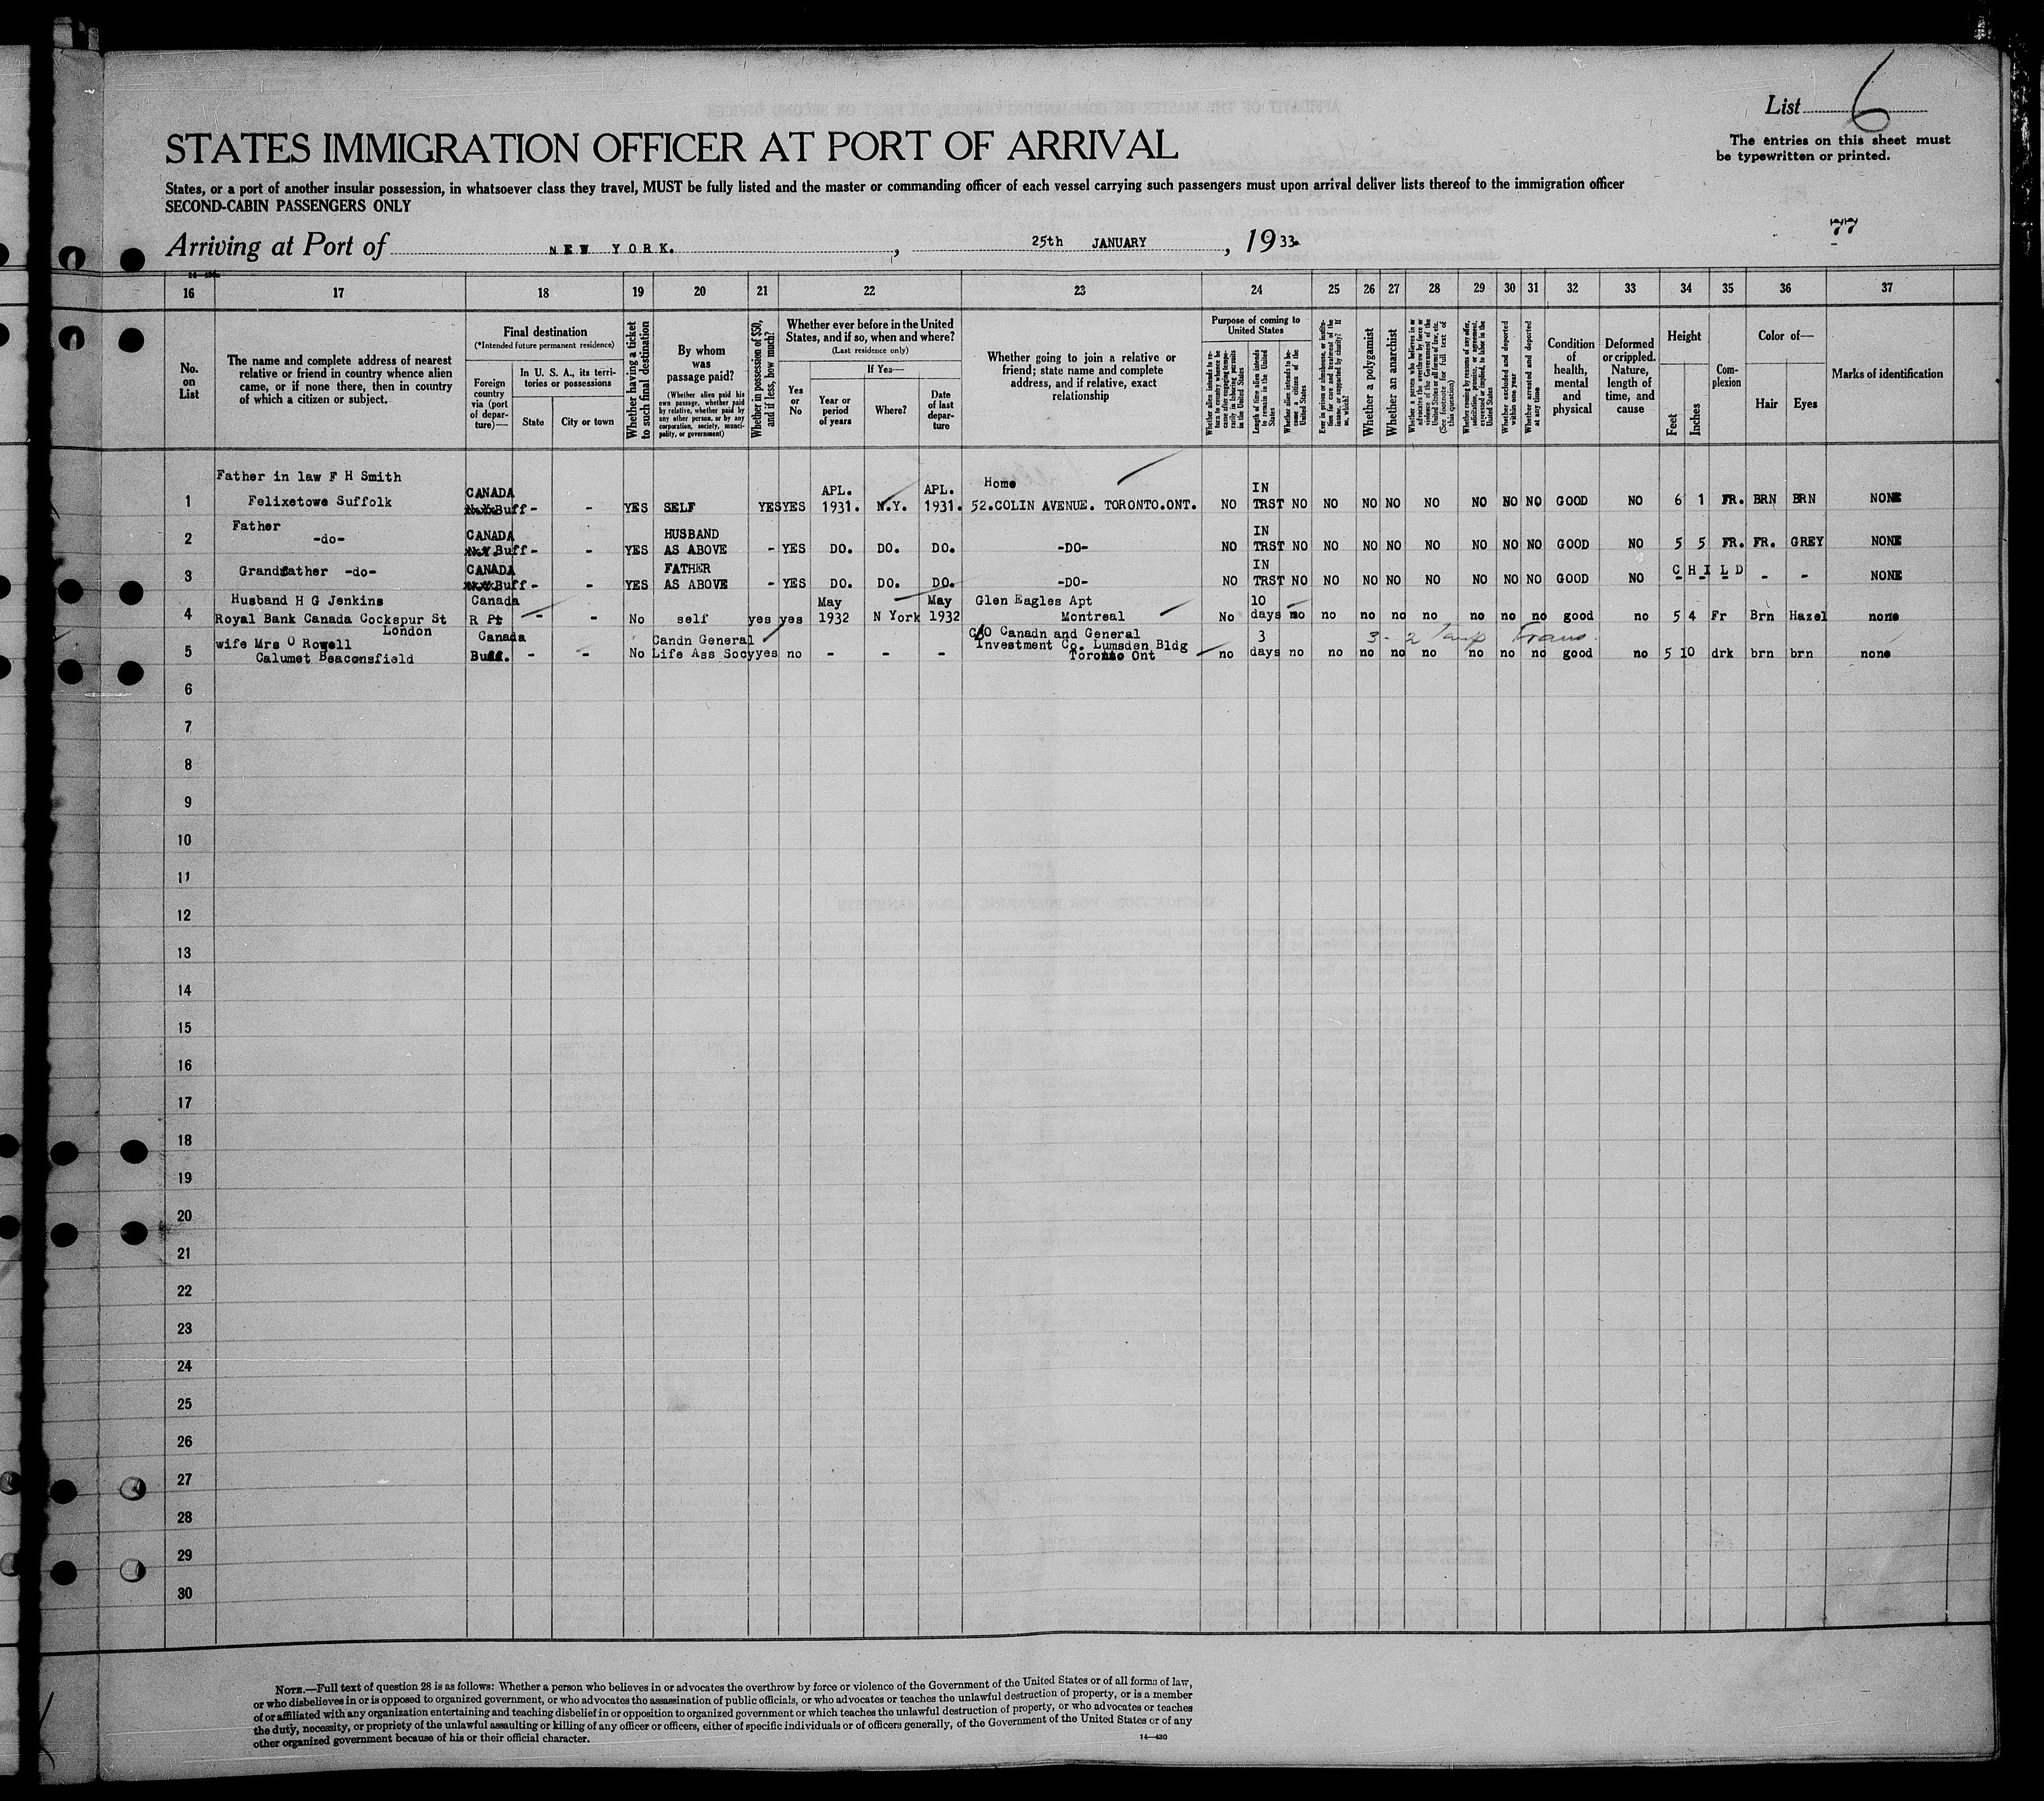 List 6
The entries on this sheet must
be typewritten or printed.
STATES IMMIGRATION OFFICER AT PORT OF ARRIVAL
States, or a port of another insular possession, in whatsoever class they travel, MUST be fully listed and the master or commanding officer of each vessel carrying such passengers must upon arrival deliver lists thereof to the immigration officer
SECOND-CABIN PASSENGERS ONLY
77
Arriving at Port of NEW YORK. , 25th JANUARY , 1933.
16 17 18 19 20 21 22 23 24 25 26 27 28 29 30 31 32 33 34 35 36 37
No. on List
The name and complete address of nearest
relative or friend in country whence alien
came, or if none there, then in country
of which a citizen or subject.
Final destination
(*Intended future permanent residence)
Foreign
country
via (port
of depar-
ture)—
In U. S. A., its terri-
tories or possessions
State
City or town
Whether having a ticket
to such final destination
By whom
was
passage paid?
(Whether alien paid his
own passage, whether paid
by relative, whether paid by
any other person, or by any
corporation, society, munici-
pality, or government)
Whether in possession of $50,
and if less, how much?
Whether ever before in the United
States, and if so, when and where?
(Last residence only)
Yes
or
No
If Yes—
Year or
period
of years
Where?
Date
of last
depar-
ture
Whether going to join a relative or
friend; state name and complete
address, and if relative, exact
relationship
Purpose of coming to
United States
Whether alien intends to re-
turn to country whence he
came after engaging tempo-
rarily in laboring pursuits
in the United States
Length of time alien intends
to remain in the United
States
Whether alien intends to be-
come a citizen of the
United States
Ever in prison or almshouse, or institu-
tion for care and treatment of the
insane, or supported by charity? If
so, which?
Whether a polygamist
Whether an anarchist
Whether a person who believes in or
advocates the overthrow by force or
violence of the Government of the
United States or all forms of law, etc.
(See footnote for full text of
this question)
Whether coming by reasons of any offer,
solicitation, promise, or agreement,
expressed or implied, to labor in the
United States
Whether excluded and deported
within one year
Whether arrested and deported
at any time
Condition
of
health,
mental
and
physical
Deformed
or crippled.
Nature,
length of
time, and
cause
Height
Feet
Inches
Com-
plexion
Color of—
Hair
Eyes
Marks of identification
Father in law F H Smith CANADA APL. APL. Home IN
1 Felixetowe Suffolk Buff - - YES SELF YES YES 1931. N.Y. 1931. 52.COLIN AVENUE. TORONTO.ONT. NO TRST NO NO NO NO NO NO NO NO GOOD NO 6 1 FR. BRN BRN NONE
Father CANADA HUSBAND IN
2 -do- Buff - - YES AS ABOVE - YES DO. DO. DO. -DO- NO TRST NO NO NO NO NO NO NO NO GOOD NO 5 5 FR. FR. GREY NONE
Grandfather -do- CANADA FATHER IN CHILD
3 Buff - - YES AS ABOVE - YES DO. DO. DO. -DO- NO TRST NO NO NO NO NO NO NO NO GOOD NO - - - - - NONE
Husband H G Jenkins Canada May May Glen Eagles Apt 10
4 Royal Bank Canada Cockspur St R Pt - - No self yes yes 1932 N York 1932 Montreal No days no no no no no no no no good no 5 4 Fr Brn Hazel none
London
wife Mrs O Rowell Canada Candn General C/O Canadn and General 3 3 - 2 Trans.
Investment Co. Lumsden Bldg
5 Calumet Beaconsfield Buff. - - No Life Ass Socy yes no - - - Toronto Ont no days no no no no no no no no good no 5 10 drk brn brn none
6
7
8
9
10
11
12
13
14
15
16
17
18
19
20
21
22
23
24
25
26
27
28
29
30
NOTE.—Full text of question 28 is as follows: Whether a person who believes in or advocates the overthrow by force or violence of the Government of the United States or of all forms of law,
or who disbelieves in or is opposed to organized government, or who advocates the assassination of public officials, or who advocates or teaches the unlawful destruction of property, or is a member
of or affiliated with any organization entertaining and teaching disbelief in or opposition to organized government or which teaches the unlawful destruction of property, or who advocates or teaches
the duty, necessity, or propriety of the unlawful assaulting or killing of any officer or officers, either of specific individuals or of officers generally, of the Government of the United States or of any
other organized government because of his or their official character.
14—430